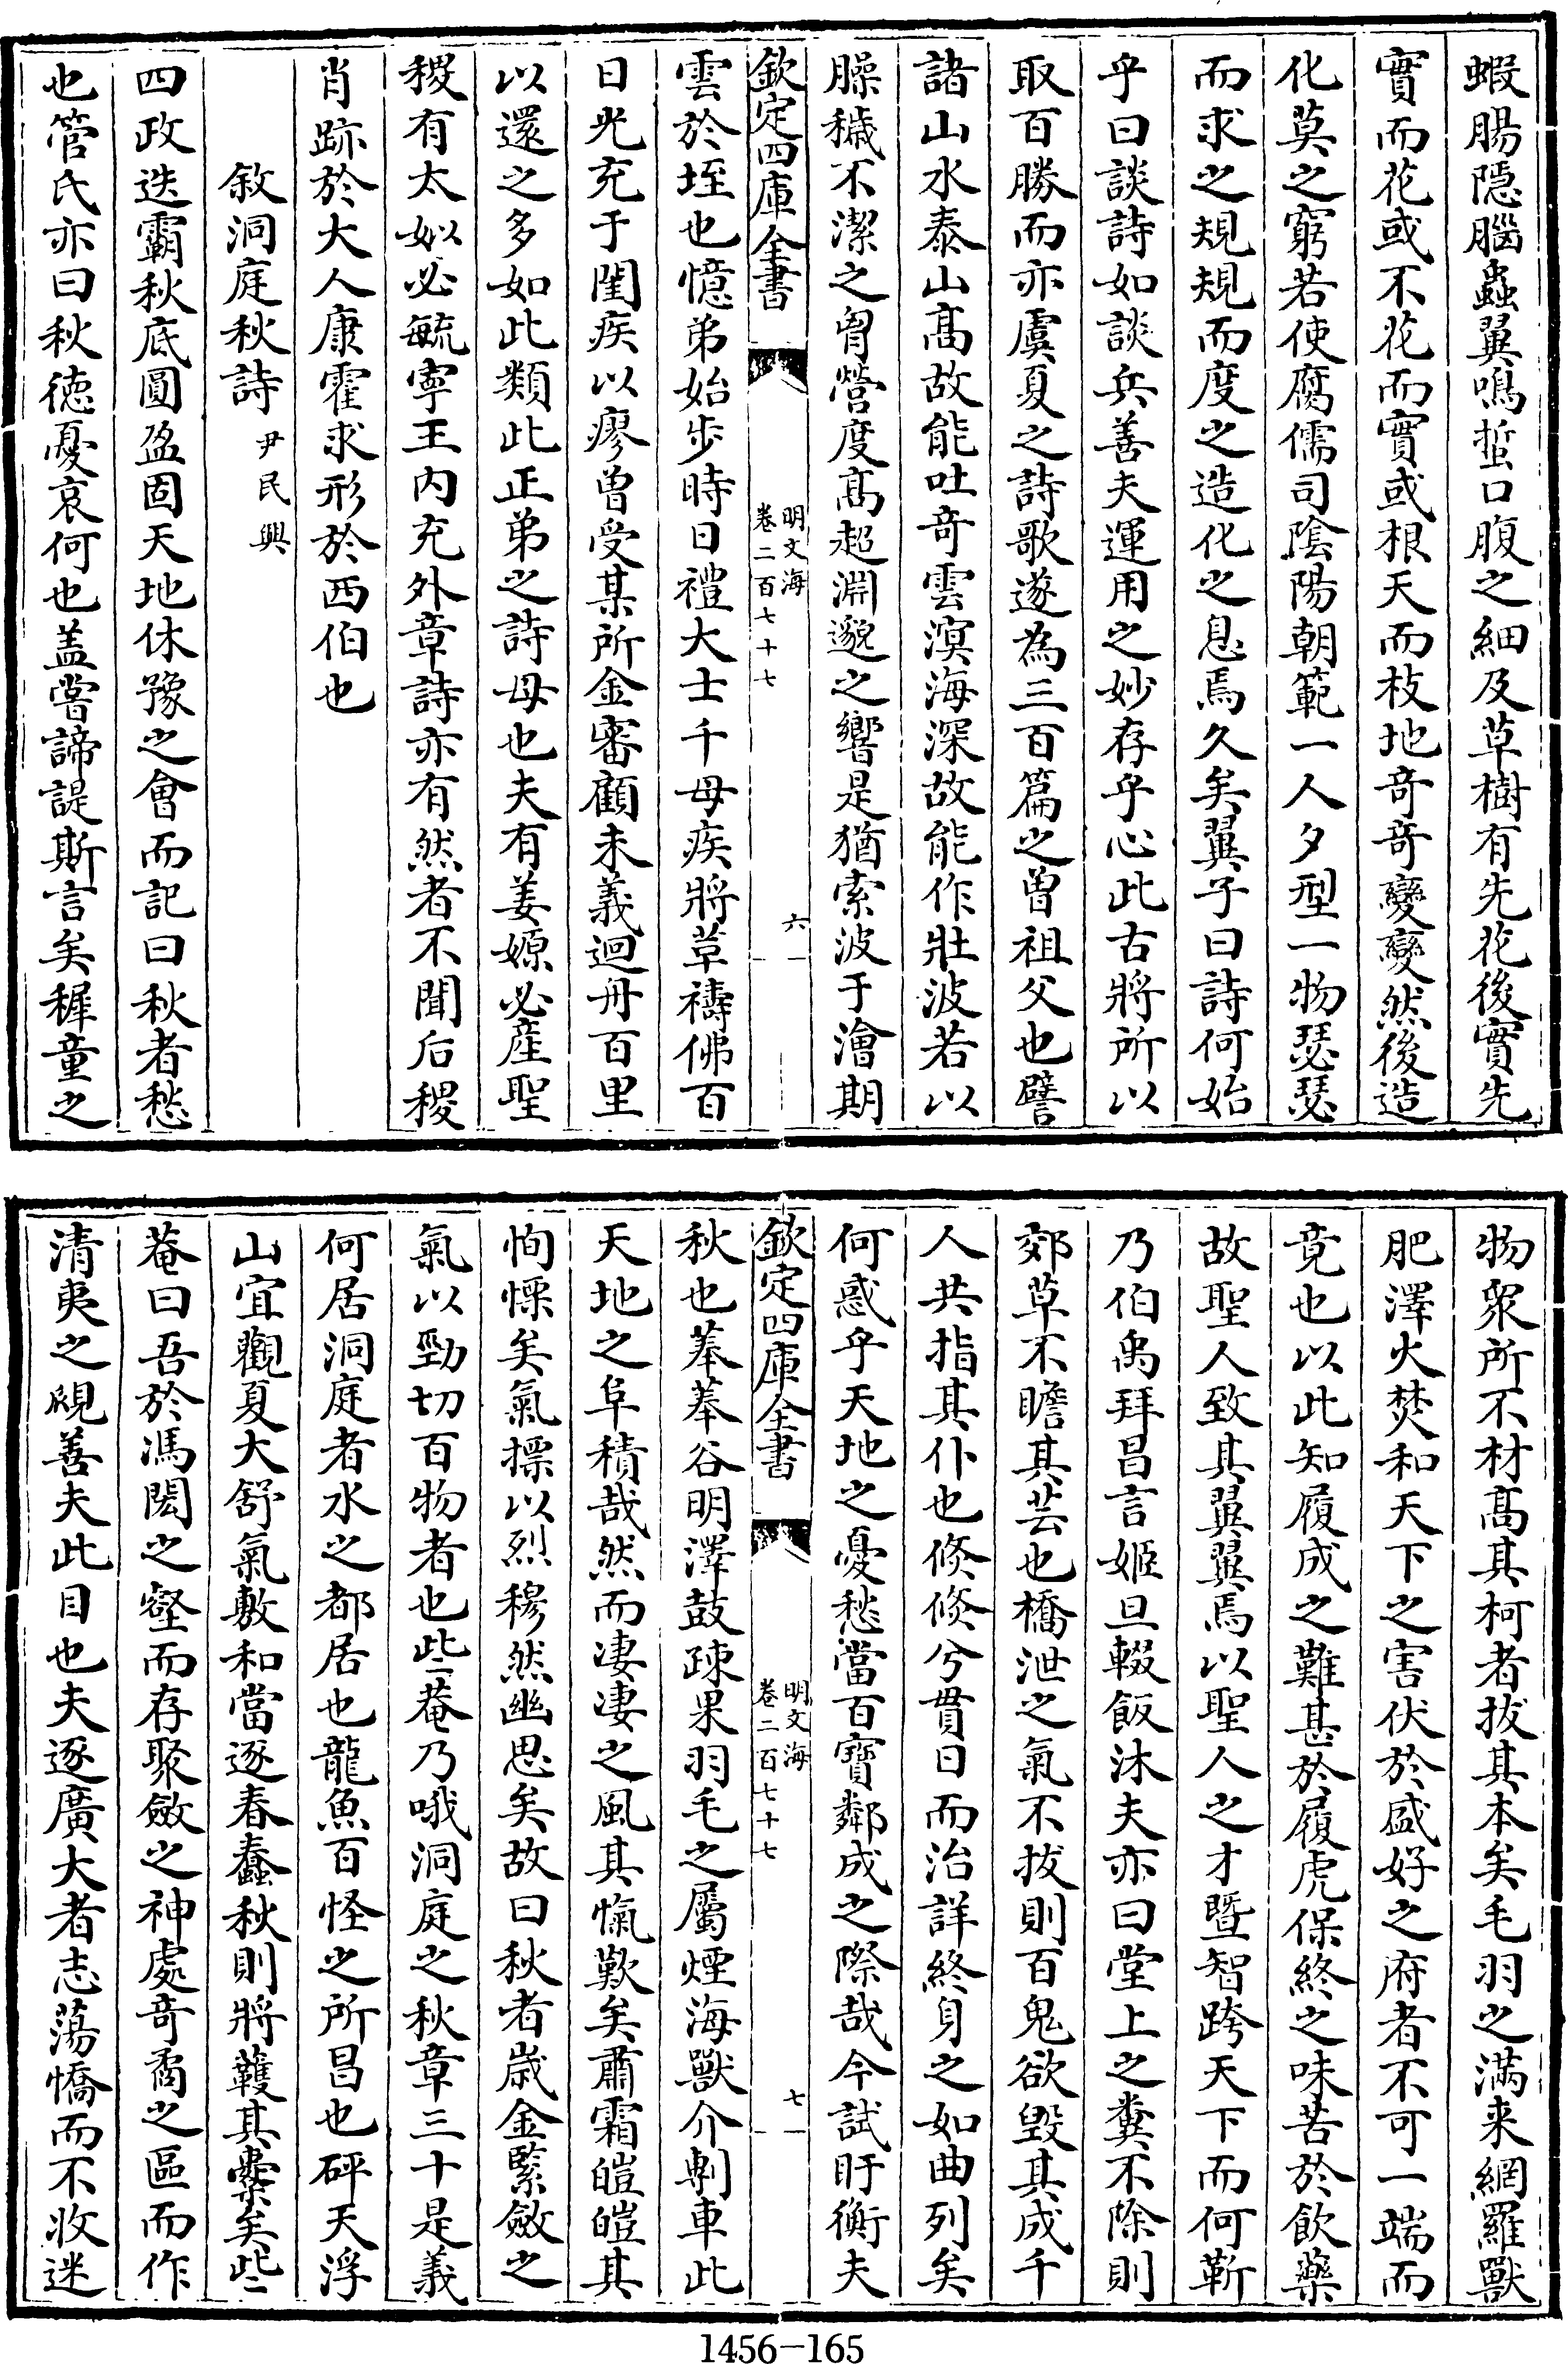 蝦腸隱腦蟲翼鳴蜇口腹之細及草樹有先花後實先
實而花或不花而實或根天而枝地奇奇變變然後造
化莫之窮若使腐儒司陰陽朝範一人夕型一物瑟瑟
而求之規規而度之造化之息焉久矣翼子曰詩何始
乎曰談詩如談兵善夫運用之妙存乎心此古將所以
取百勝而亦虞夏之詩歌遂為三百篇之曾祖父也譬
諸山水泰山髙故能吐奇雲溟海深故能作壯波若以
臊穢不潔之胷營度髙超淵邈之響是猶索波于澮期
欽定四庫全書
明文海
卷二百七十七
六
雲於垤也憶弟始步時日禮大士千母疾將草禱佛百
日光充于閨疾以瘳曾受某所金審顧未義迴舟百里
以還之多如此類此正弟之詩母也夫有姜嫄必產聖
稷有太姒必毓寧王内充外章詩亦有然者不聞后稷
肖跡於大人康霍求形於西伯也
敘洞庭秋詩
尹民興
四政迭霸秋底圓盈固天地休豫之會而記曰秋者愁
也管氏亦曰秋徳憂哀何也盖嘗諦諟斯言矣穉童之
物衆所不材髙其柯者拔其本矣毛羽之滿来網羅獸
肥澤火焚和天下之害伏於盛好之府者不可一端而
竟也以此知履成之難甚於履虎保終之味苦於飲藥
故聖人致其翼翼焉以聖人之才暨智跨天下而何靳
乃伯禹拜昌言姬旦輟飯沐夫亦曰堂上之糞不除則
郊草不瞻其芸也橋泄之氣不拔則百鬼欲毁其成千
人共指其仆也倏倏兮貫日而治詳終身之如曲列矣
何惑乎天地之憂愁當百寶鄰成之際哉今試盱衡夫
欽定四庫全書
明文海
卷二百七十七
七
秋也菶菶谷明澤鼓疎果羽毛之屬煙海獸介剸車此
天地之阜積哉然而凄凄之風其愾歎矣肅霜皚皚其
恂慄矣氣摽以烈穆然幽思矣故曰秋者嵗金緊斂之
氣以勁切百物者也些菴乃哦洞庭之秋章三十是義
何居洞庭者水之都居也龍魚百怪之所昌也砰天浮
山宜觀夏大舒氣敷和當逐春蠢秋則將韄其橐矣些
菴曰吾於馮閎之壑而存聚斂之神處奇矞之區而作
清夷之覛善夫此目也夫逐廣大者志蕩憍而不收迷
1456-165